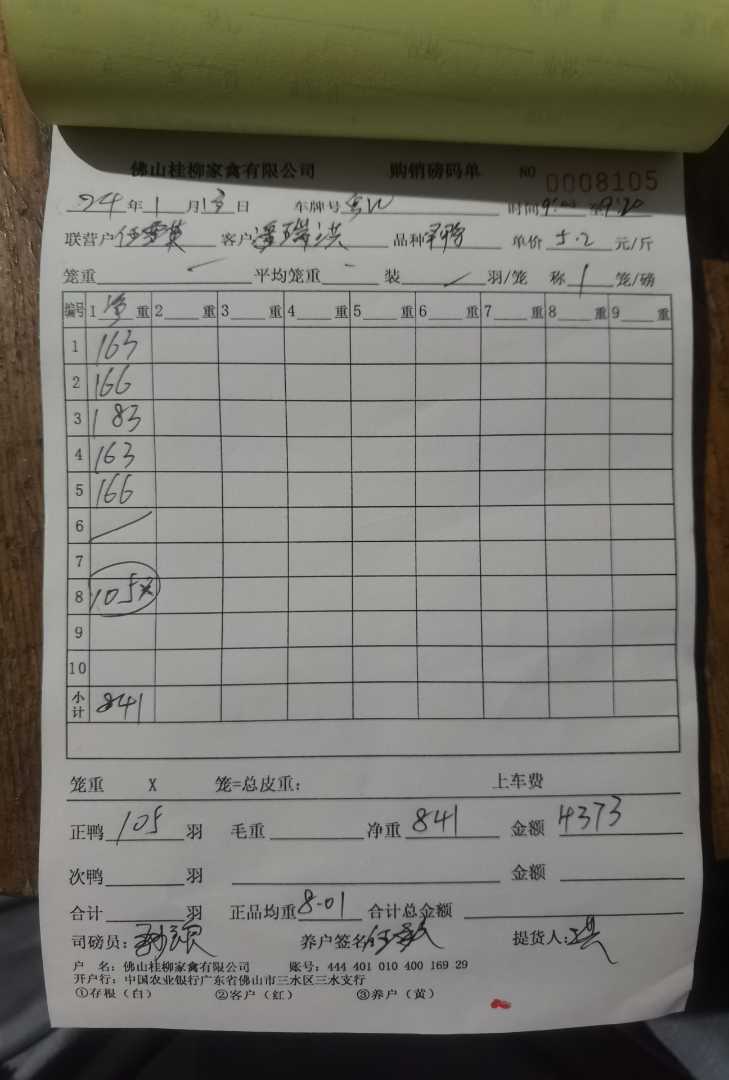 佛山桂柳家禽有限公司 购销磅码单 NO 0008105
24 年 1 月 日 车牌号 时间 9:00 至 9:20
联营户 客户 潘瑞洪 品种 单价 5.2 元/斤
笼重 平均笼重 装 羽/笼 称 1 笼/磅
编号 1 净 重 2 重 3 重 4 重 5 重 6 重 7 重 8 重 9 重
1 163
2 166
3 183
4 163
5 166
6
7
8 105只
9
10
小计 841
笼重 X 笼=总皮重: 上车费
正鸭 105 羽 毛重 净重 841 金额 4373
次鸭 羽 金额
合计 羽 正品均重 8.01 合计总金额
司磅员: 养户签名 提货人: 洪
户 名: 佛山桂柳家禽有限公司 账号: 444 401 010 400 169 29
开户行: 中国农业银行广东省佛山市三水区三水支行
①存根(白) ②客户(红) ③养户(黄)